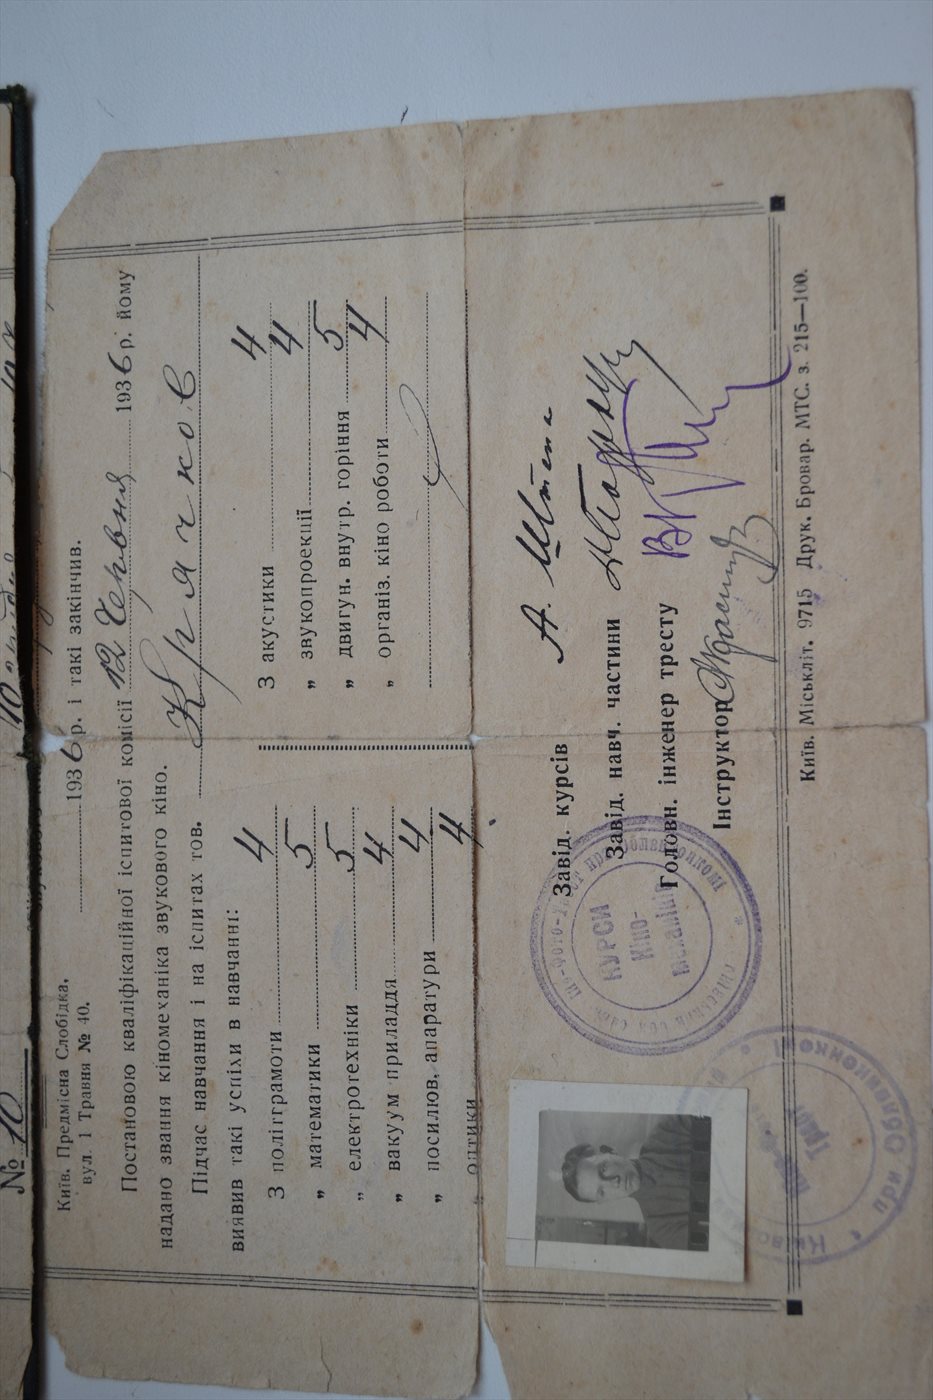 № 10
Київ. Предмісна Слобідка.
вул. 1 Травня № 40.
1936 р. і такі закінчив.
Постановою кваліфікаційної іспитової комісії 12 Червня 1936 р. йому
надано звання кіномеханіка звукового кіно.
Підчас навчання і на іспитах тов. Крячков
виявив такі успіхи в навчанні:
З політграмоти 4
„ математики 5
„ електротехніки 5
„ вакуум приладдя 4
„ посилюв. апаратури 4
„ оптики 4
З акустики 4
„ звукопроекції 4
„ двигун. внутр. горіння 5
„ організ. кіно роботи 4
Завід. курсів А.
Завід. навч. частини
Головн. інженер тресту
Інструктор
КУРСИ
Кіно-
механіків
при Облвиконкомі
Київ. Міськліт. 9715 Друк. Бровар. МТС. з. 215—100.